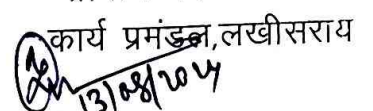 कार्य प्रमंडल,लखीसराय
13/08/2024